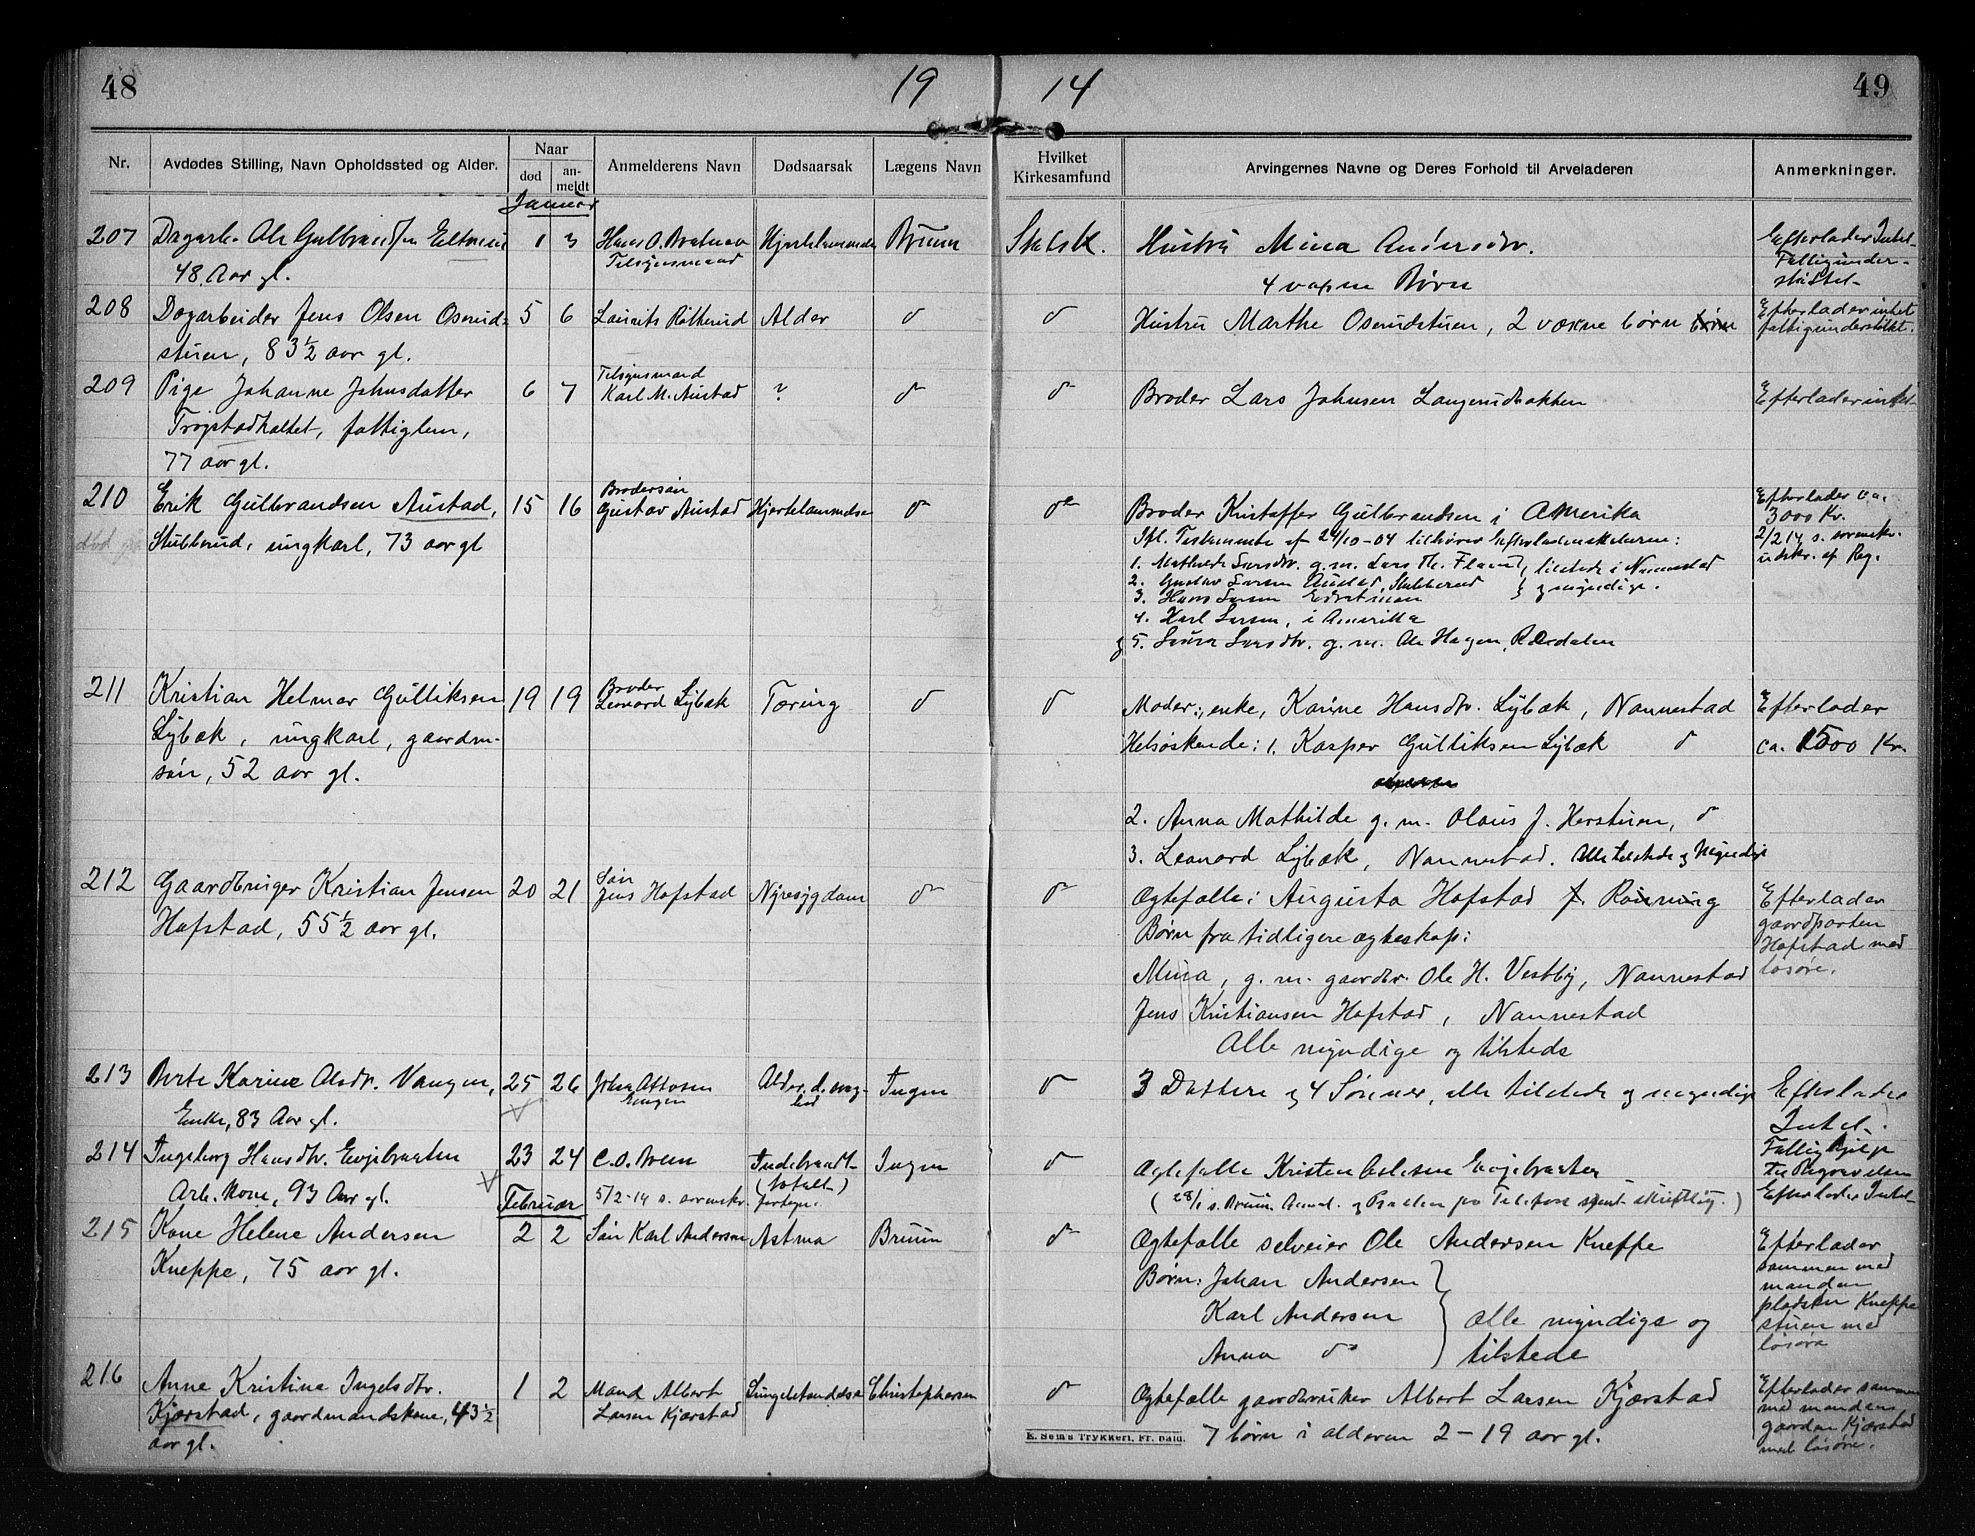 48
19 14
49
Nr.
Avdødes Stilling, Navn Opholdssted og Alder.
Naar
død
an-
meldt
Anmelderens Navn
Dødsaarsak
Lægens Navn
Hvilket
Kirkesamfund
Arvingernes Navne og Deres Forhold til Arveladeren
Anmerkninger.
Januar
207 Dagarb. Ole Gulbrandsen
48 Aar gl.
1 3
Hans O.
Tilsynsmand
Bruun
Statsk.
Hustru Mina Andersdtr.
4 voxne Børn
Efterlader Intet.
Fattigunder-
støttet-
208 Dagarbeider Jens Olsen Oserud-
stuen, 83 ½ aar gl.
5 6
Laurits Røtterud
Alder
d d
Hustru Marthe Oserudstuen, 2 voxne børn
Efterlader intet
fattigunderstøttet.
209 Pige Johanne Johnsdatter
Trøgstadhaltet, fattiglem,
77 aar gl.
6 7
Tilsynsmand
Karl M. Austad
?
d d
Broder Lars Johnsen
Efterlader intet
210 Erik Gulbrandsen Austad,
Stubberud, ungkarl, 73 aar gl
15 16
Brodersøn
Gustav Austad
Hjertelammelse
d do
Broder Kristoffer Gulbrandsen i Amerika
Ifl. Testamente af 24/10-04 tilhører Efterladenskaberne:
1. Mathilde Larsdtr. g.m. Lars Th. tilstede i Nannestad
2. Gustav Larsen Austad, Stubberud og myndige.
3. Hans Larsen
4. Karl Larsen, i Amerika
og 5. Laura Larsdtr. g.m. Ole Hagen,
Efterlader ca.
3000 Kr.
2/2 14 s. sorenskr.
udskr. af Reg.
211 Kristian Helmer Gulliksen
Lybæk, ungkarl, gaardm-
søn, 52 aar gl.
19 19
Broder
Leonard Lybæk
Tæring
d d
Moder:, enke, Karine Hansdtr. Lybæk, Nannestad
Helsøskende: 1. Kasper Gulliksen Lybæk d
2. Anna Mathilde g.m. Olaus J. Herstuen, d
3. Leonard Lybæk, Nannestad. Alle tilstede og Myndige
Efterlader
ca. 1500 Kr.
212 Gaardbruger Kristian Jensen
Hofstad, 55 ½ aar gl.
20 21
Søn
Jens Hofstad
Nyresygdom
d d
Ægtefælle: Augusta Hofstad f. Rønning
Børn fra tidligere ægteskap:
Mina, g.m. gaardbr. Ole H. Vestby, Nannestad
Jens Kristiansen Hofstad, Nannestad
Alle myndige og tilstede
Efterlader
gaardparten
Hofstad med
løsøre.
213 Berte Karine Olsdr. Vangen,
Enke, 83 Aar gl.
25 26
Johan Ottosen
Engen
Ingen
d
3 Døttere og 4 Sønner, alle tilstede og myndige
Efterlader
Intet.
214 Ingeborg Hansdtr.
Arb. Kone, 93 Aar gl.
23 24
C.O.
Ingen
d
5/2-14 s. sorenskr.
Ægtefælle Kristen
Fattighjelp
til Begravelsen
Efterlader Intet
Februar
215 Kone Helene Andersen
Kneppe, 75 aar gl.
2 2
Søn Karl Andersen
Astma
Bruun
d
Ægtefælle selveier Ole Andersen Kneppe
Børn: Johan Andersen
Karl Andersen alle myndige og
Anna do tilstede
Efterlader
sammen med
manden
pladsen Kneppe
stuen med
løsøre
216 Anne Kristine Ingelsdtr.
Kjærstad, gaardmandskone, 43 ½
aar gl.
1 2
Mand Albert
Larsen Kjærstad
Lungebetændelse
Christophersen
d
Ægtefælle gaardbruker Albert Larsen Kjærstad
7 børn i alderen 2-19 aar gl.
Efterlader sammen
med manden
gaarden Kjærstad
med løsøre.
E. Sem's Trykkeri, Fr. hald.